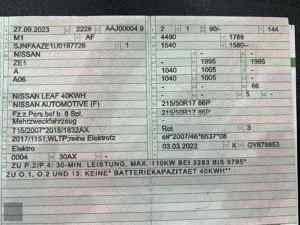 27.09.2023 - 2228 AAJ00004 9 2 1 90/- 144
M1 AF 4490 1788
SJNFAAZE1U0197726 1540 1580-
NISSAN
ZE1 1995 1995
A 1040 1005
A06 1040 1005
66
NISSAN LEAF 40KWH 5
NISSAN AUTOMOTIVE (F) 215/50R17 86P
Fz.z.Pers.bef.b. 8 Spl. 215/50R17 86P
Mehrzweckfahrzeug
715/2007*2018/1832AX Rot 3
2017/1151;WLTP;reine Elektrofz
Elektro 03.03.2022 K
0004 30AX
ZU P.2/P.4: 30-MIN. LEISTUNG, MAX. 110KW BEI 3283 BIS 9795*
ZU O.1, O.2 UND 13: KEINE* BATTERIEKAPAZITAET 40KWH*